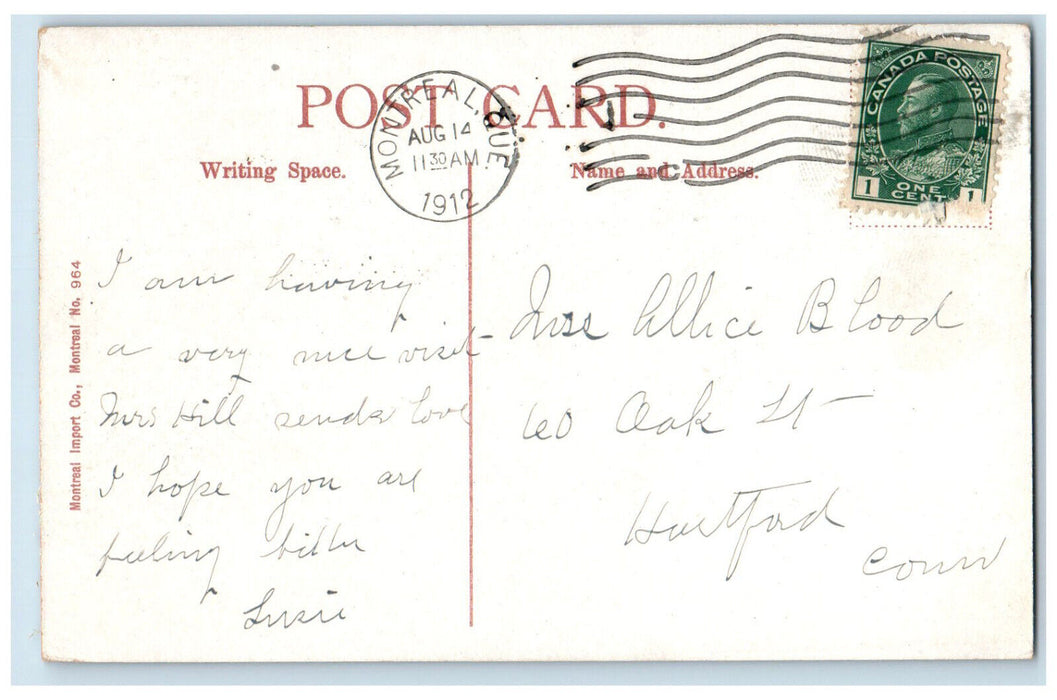 POST CARD.
MONTREAL, QUE.
AUG 14
11 30 AM
1912
CANADA POSTAGE
1 ONE CENT 1
Writing Space.
Name and Address.
Montreal Import Co., Montreal No. 964
I am having
a very nice visit
Mrs Hill sends love
I hope you are
feeling better
Susie
Miss Allice Blood
60 Oak St
Hartford
Conn